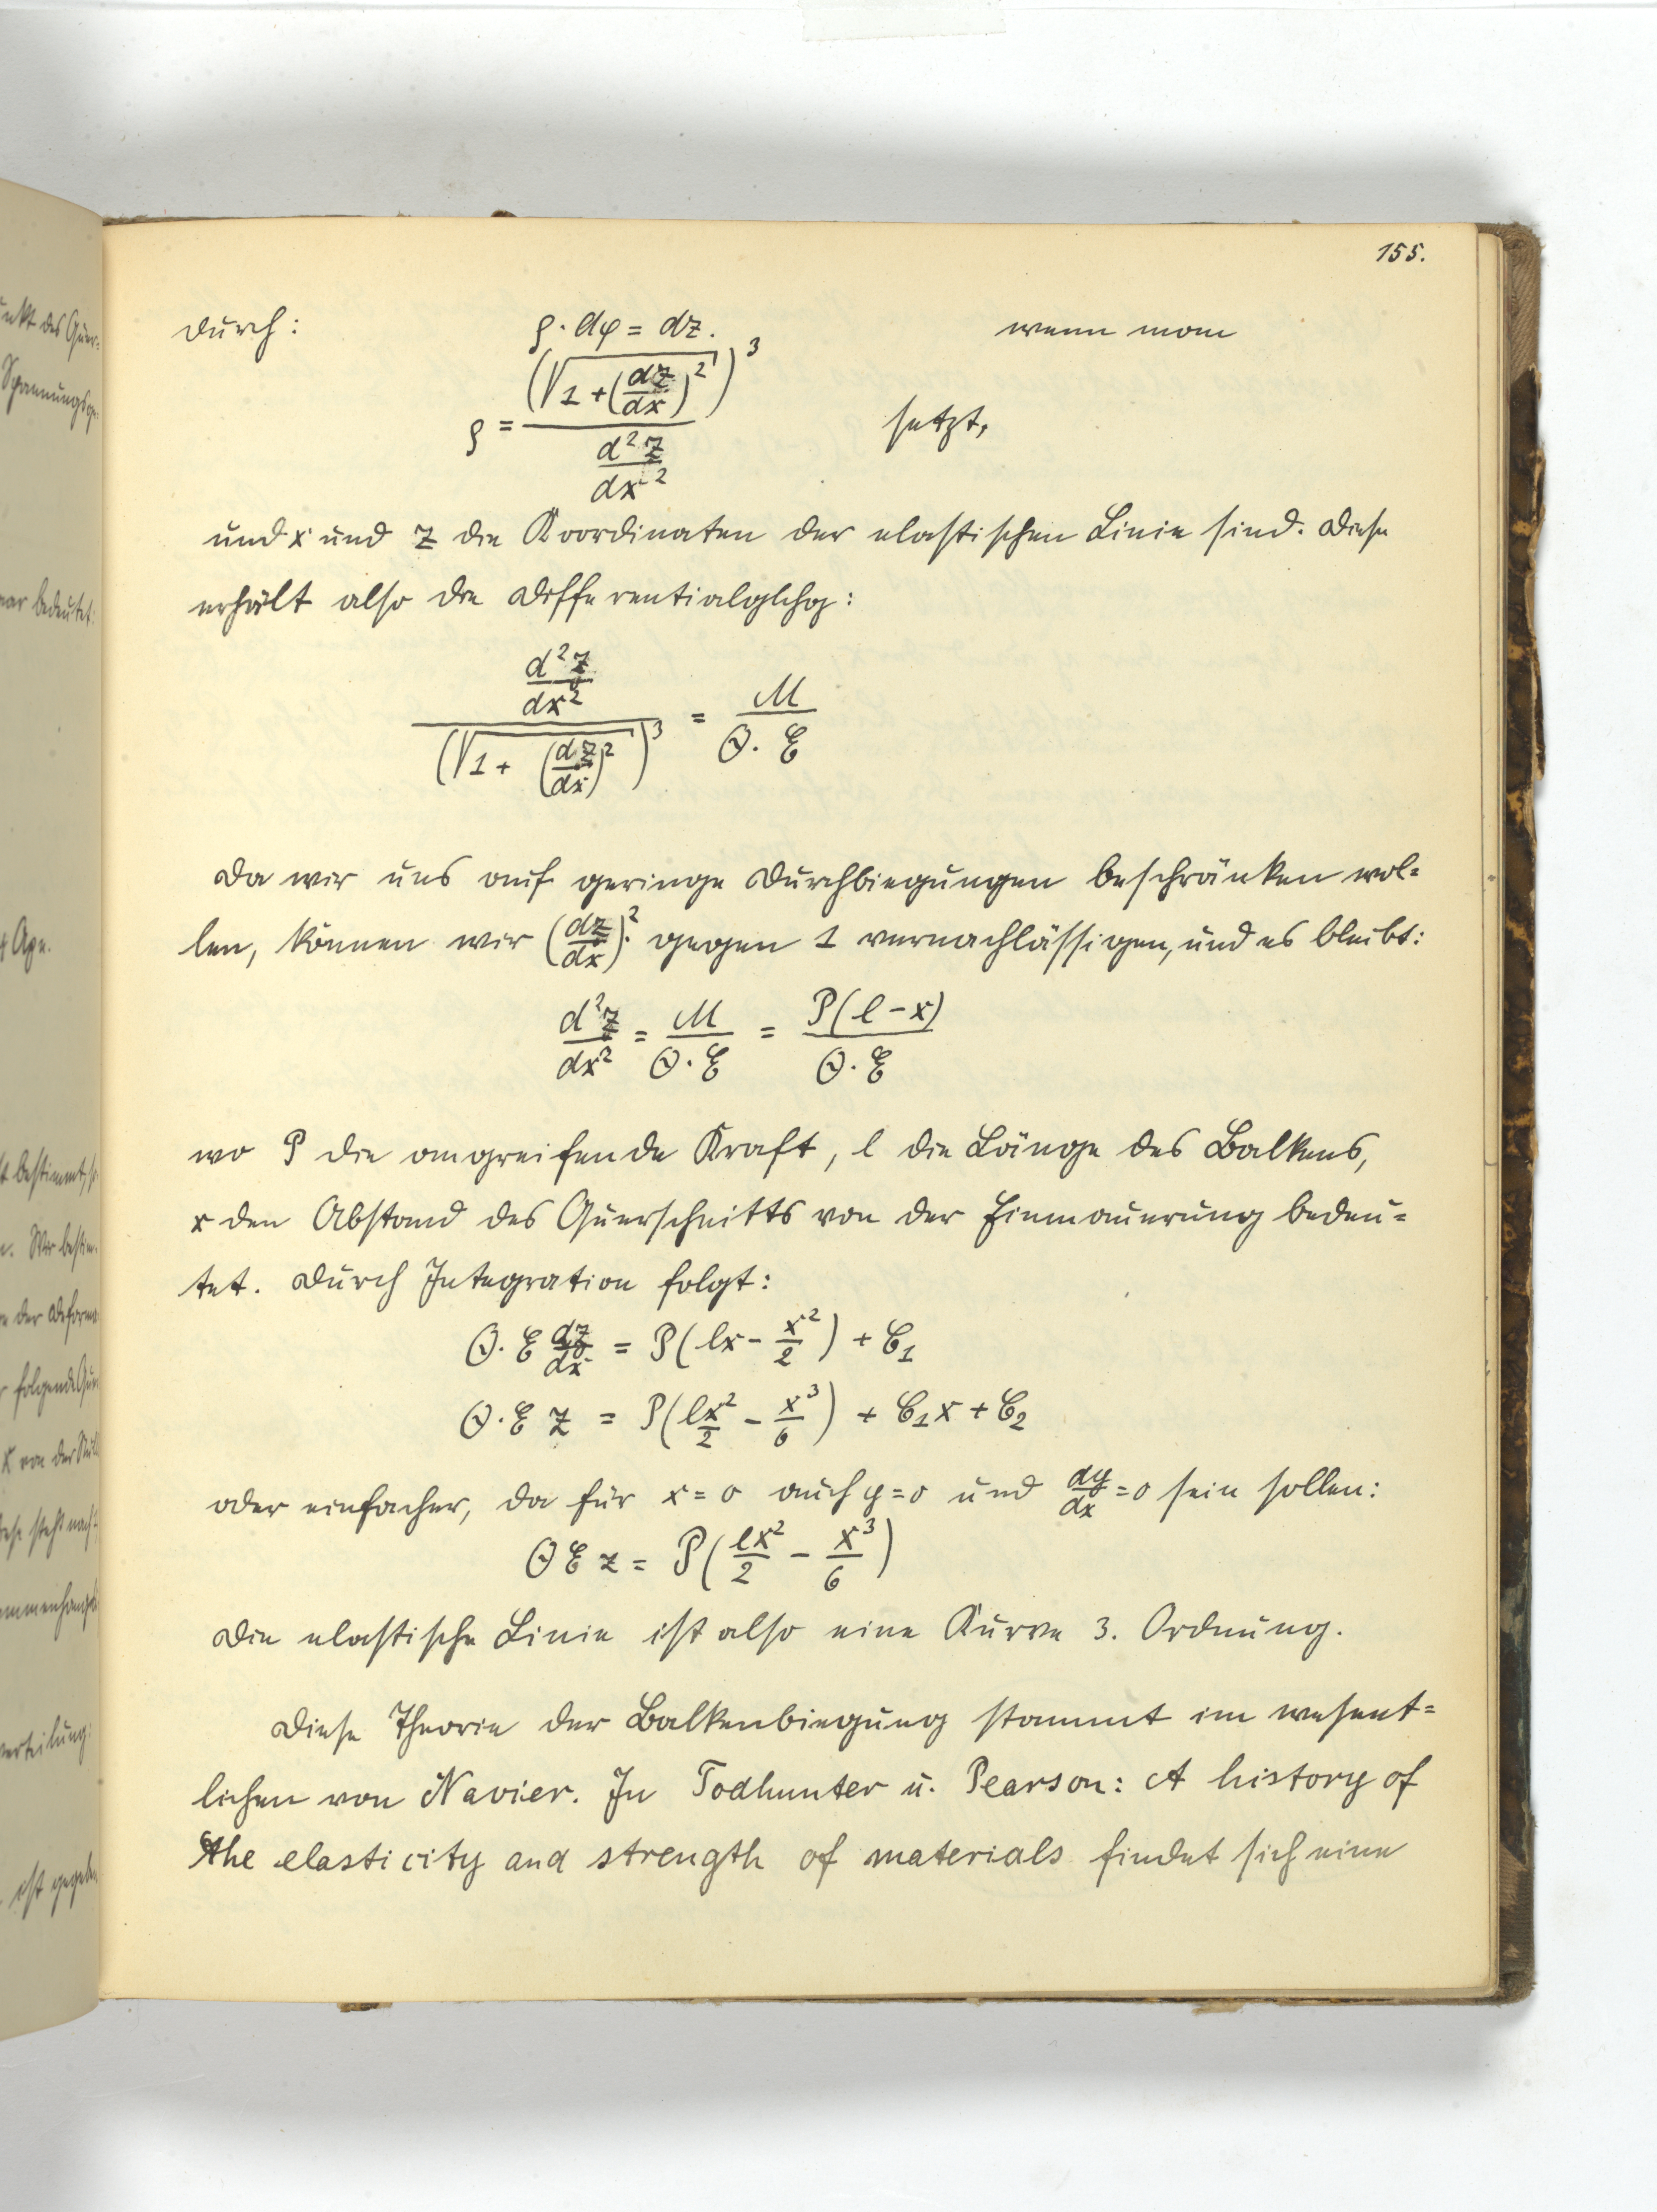 155.
durch: ρ·dφ = dz. wenn man
ρ = (√(1 + (dz/dx)²))³ / (d²z/dx²) setzt,
und x und z die Koordinaten der elastischen Linie sind. Diese
erhält also die Differentialglchg:
(d²z/dx²) / (√(1 + (dz/dx)²))³ = M / (Θ·E)
Da wir uns auf geringe Durchbiegungen beschränken wol-
len, können wir (dz/dx)² gegen 1 vernachlässigen, und es bleibt:
d²z/dx² = M/(Θ·E) = P(l-x)/(Θ·E)
wo P die angreifende Kraft, l die Länge des Balkens,
x den Abstand des Querschnitts von der Einmauerung bedeu-
tet. Durch Integration folgt:
Θ·E dz/dx = P(lx - x²/2) + C₁
Θ·E z = P(lx²/2 - x³/6) + C₁x + C₂
oder einfacher, da für x=0 auch y=0 und dy/dx=0 sein sollen:
Θ E z = P(lx²/2 - x³/6)
Die elastische Linie ist also eine Kurve 3. Ordnung.
Diese Theorie der Balkenbiegung stammt im wesent-
lichen von Navier. In Todhunter u. Pearson: A history of
the elasticity and strength of materials findet sich eine